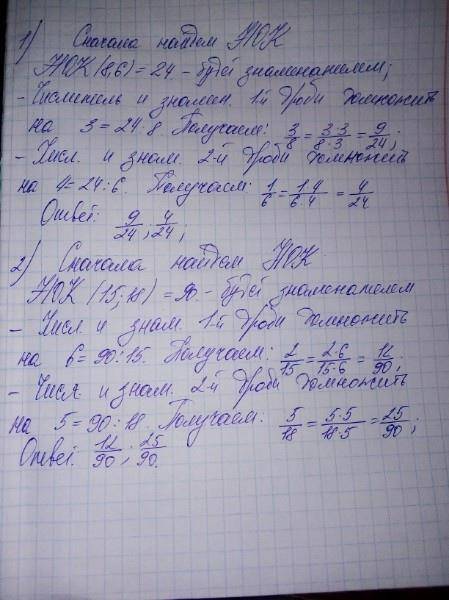 1) Сначала найдем НОК
НОК (8,6) = 24 - будет знаменателем;
- Числитель и знамен. 1-й дроби домножить
на 3 = 24:8 Получаем: 3/8 = 3·3/8·3 = 9/24;
- Числ. и знам. 2-й дроби домножить
на 4 = 24:6. Получаем: 1/6 = 1·4/6·4 = 4/24
Ответ: 9/24; 4/24;
2) Сначала найдем НОК
НОК (15; 18) = 90 - будет знаменателем
- Числ. и знам. 1-й дроби домножить
на 6 = 90:15. Получаем: 2/15 = 2·6/15·6 = 12/90;
- Числ и знам. 2-й дроби домножить
на 5 = 90:18. Получаем: 5/18 = 5·5/18·5 = 25/90;
Ответ: 12/90; 25/90.